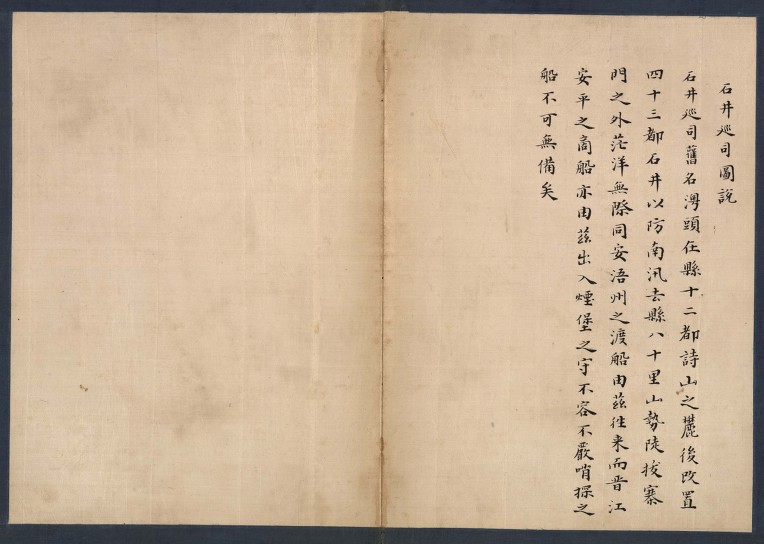 石井廵司圖說
石井廵司舊名灣頭在縣十二都詩山之麓後改置
四十三都石井以防南汛去縣八十里山勢陡拔寨
門之外茫洋無際同安浯州之渡船由茲徃来而晋江
安平之商船亦由茲出入煙堡之守不容不嚴哨探之
船不可無備矣